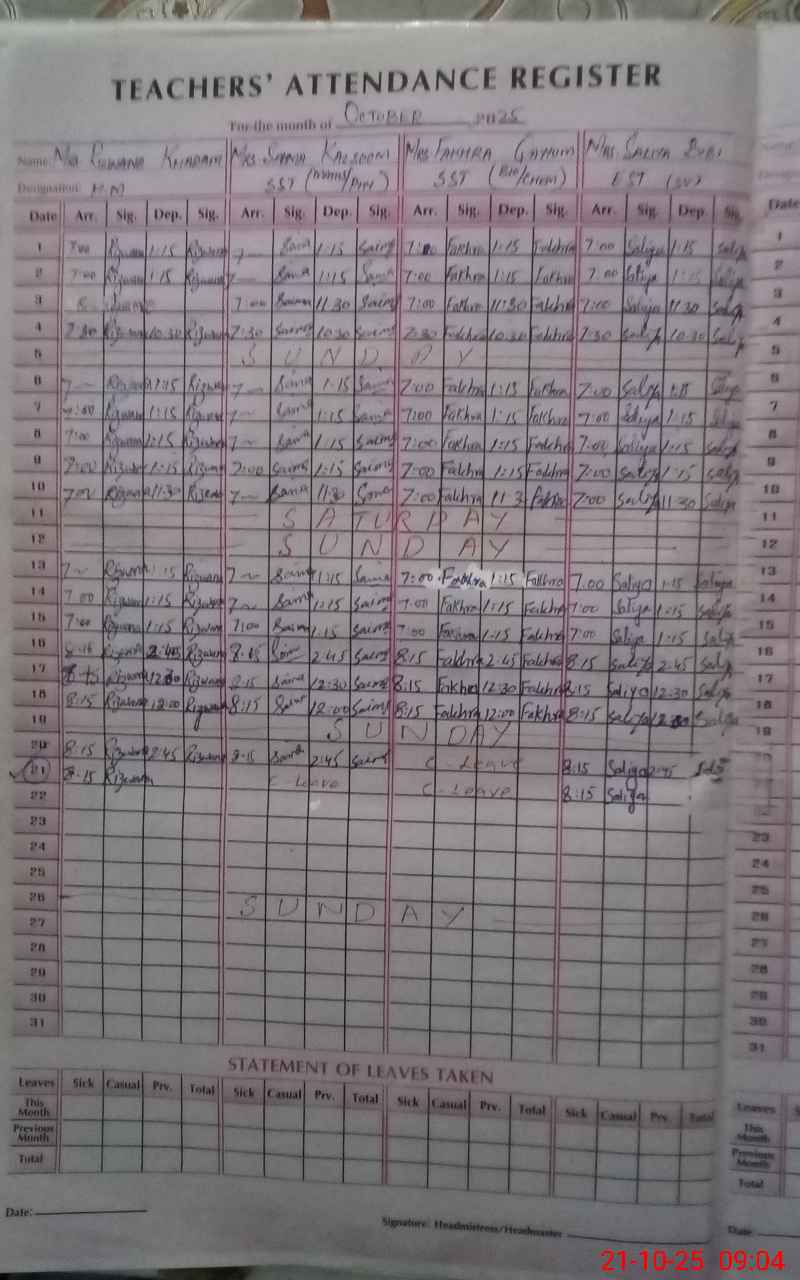 TEACHERS' ATTENDANCE REGISTER
For the month of OCTOBER 2025
Name: Mrs Rizwana Khadam Mrs Saima Kalsoom Mrs Fakhra Mrs Saliya Bibi
Designation: H.M SST (Maths/Phy) SST (Bio/Chem) EST
Date Arr. Sig. Dep. Sig. Arr. Sig. Dep. Sig. Arr. Sig. Dep. Sig. Arr. Sig. Dep. Sig. Date
1 7:00 Rizwana 1:15 Rizwana 7 Saima 1:15 Saima 7:00 Fakhra 1:15 Fakhra 7:00 Saliya 1:15 Saliya 1
2 7:00 Rizwana 1:15 Rizwana 7 Saima 1:15 Saima 7:00 Fakhra 1:15 Fakhra 7:00 Saliya 1:15 Saliya 2
3 7:00 Saima 11:30 Saima 7:00 Fakhra 11:30 Fakhra 7:00 Saliya 11:30 Saliya 3
4 7:30 Rizwana 10:30 Rizwana 7:30 Saima 10:30 Saima 7:30 Fakhra 10:30 Fakhra 7:30 Saliya 10:30 Saliya 4
5 SUNDAY 5
6 7 Rizwana 1:15 Rizwana 7 Saima 1:15 Saima 7:00 Fakhra 1:15 Fakhra 7:00 Saliya 1:15 Saliya 6
7 7:00 Rizwana 1:15 Rizwana 7 Saima 1:15 Saima 7:00 Fakhra 1:15 Fakhra 7:00 Saliya 1:15 Saliya 7
8 7:00 Rizwana 1:15 Rizwana 7 Saima 1:15 Saima 7:00 Fakhra 1:15 Fakhra 7:00 Saliya 1:15 Saliya 8
9 7:00 Rizwana 1:15 Rizwana 7:00 Saima 1:15 Saima 7:00 Fakhra 1:15 Fakhra 7:00 Saliya 1:15 Saliya 9
10 7 Rizwana 11:30 Rizwana 7 Saima 11:30 Saima 7:00 Fakhra 11:3 Fakhra 7:00 Saliya 11:30 Saliya 10
11 SATURDAY 11
12 SUNDAY 12
13 7 Rizwana 1:15 Rizwana 7 Saima 1:15 Saima 7:00 Fakhra 1:15 Fakhra 7:00 Saliya 1:15 Saliya 13
14 7:00 Rizwana 1:15 Rizwana 7 Saima 1:15 Saima 7:00 Fakhra 1:15 Fakhra 7:00 Saliya 1:15 Saliya 14
15 7:00 Rizwana 1:15 Rizwana 7:00 Saima 1:15 Saima 7:00 Fakhra 1:15 Fakhra 7:00 Saliya 1:15 Saliya 15
16 8:15 Rizwana 2:45 Rizwana 8:15 Saima 2:45 Saima 8:15 Fakhra 2:45 Fakhra 8:15 Saliya 2:45 Saliya 16
17 8:15 Rizwana 12:30 Rizwana 8:15 Saima 12:30 Saima 8:15 Fakhra 12:30 Fakhra 8:15 Saliya 12:30 Saliya 17
18 8:15 Rizwana 12:00 Rizwana 8:15 Saima 12:00 Saima 8:15 Fakhra 12:00 Fakhra 8:15 Saliya 12:00 Saliya 18
19 SUNDAY 19
20 8:15 Rizwana 2:45 Rizwana 8:15 Saima 2:45 Saima C-Leave 8:15 Saliya 2:45
21 8:15 Rizwana C-Leave C-Leave 8:15 Saliya
22
23 23
24 24
25 25
26 SUNDAY 26
27 27
28 28
29 29
30 30
31 31
STATEMENT OF LEAVES TAKEN
Leaves Sick Casual Prv. Total Sick Casual Prv. Total Sick Casual Prv. Total Sick Casual Prv. Total Leaves
This Month This Month
Previous Month Previous Month
Total Total
Date: Signature: Headmistress/Headmaster Date:
21-10-25 09:04